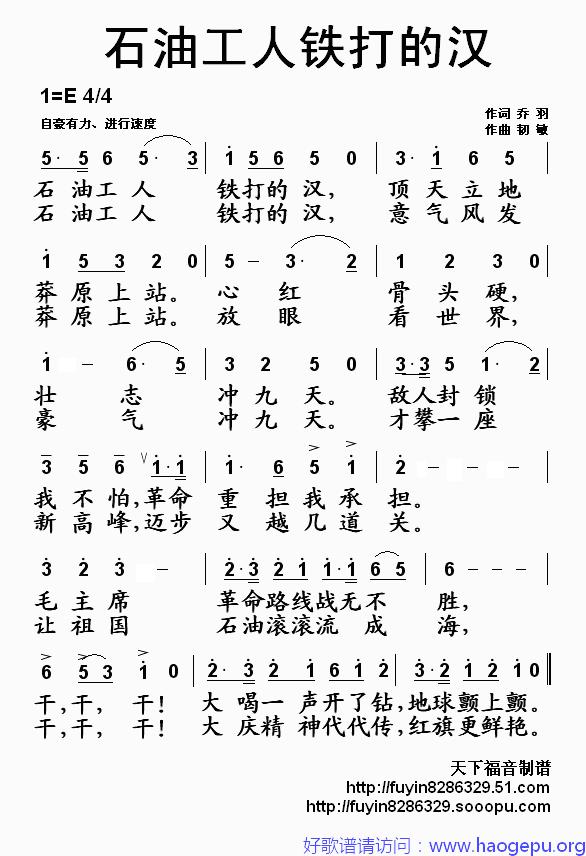 石油工人铁打的汉
1=E 4/4
自豪有力、进行速度
作词 乔 羽
作曲 韧 敏
5· 5 6 5· 3 | 1 5 6 5 0 | 3· 1 6 5
石 油 工 人 铁打的 汉, 顶 天 立 地
石 油 工 人 铁打的 汉, 意 气 风 发
1 5 3 2 0 | 5 – 3· 2 | 1 2 3 0
莽 原 上 站。 心 红 骨 头 硬,
莽 原 上 站。 放 眼 看 世 界,
1 – 6· 5 | 3 2 5 0 | 3·3 5 1· 2
壮 志 冲 九 天。 敌人 封 锁
豪 气 冲 九 天。 才攀 一 座
3 5 6 1·1 | 1· 6 5 1 | 2 – – –
我 不 怕,革命 重 担 我 承 担。
新 高 峰,迈步 又 越 几 道 关。
3 2 3 – | 2·3 2 1 1·1 6 5 | 6 – – –
毛 主 席 革命 路线 战无 不 胜,
让 祖 国 石油 滚滚 流 成 海,
6 5 3 1 0 | 2· 3 2 1 1·1 6 1 | 3·2 1 2 1 0
干,干, 干! 大 喝一 声开了 钻,地球 颤上 颤。
干,干, 干! 大 庆精 神代代 传,红旗 更鲜 艳。
天下福音制谱
http://fuyin8286329.51.com/
http://fuyin8286329.sooopu.com/
好歌谱请访问：www.haogepu.org